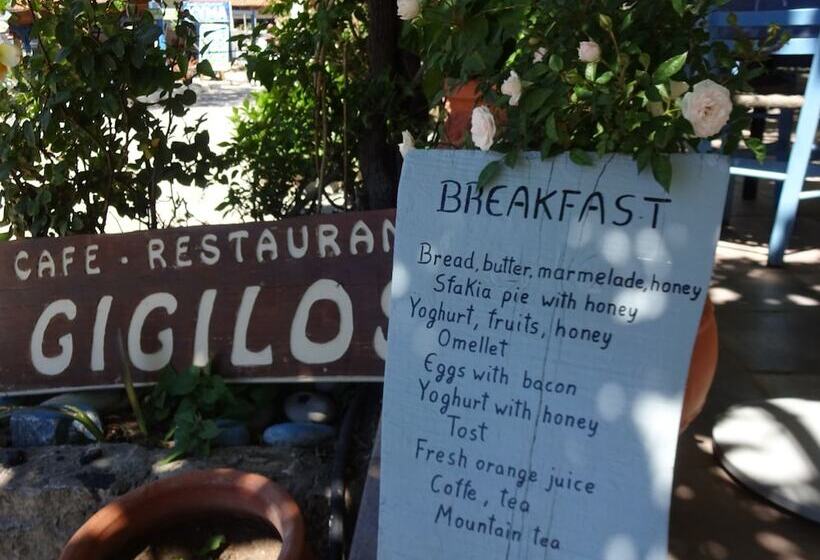 CAFE · RESTAURAN
GIGILOS
BREAKFAST
Bread, butter, marmelade, honey
Sfakia pie with honey
Yoghurt, fruits, honey
Omellet
Eggs with bacon
Yoghurt with honey
Tost
Fresh orange juice
Coffe, tea
Mountain tea